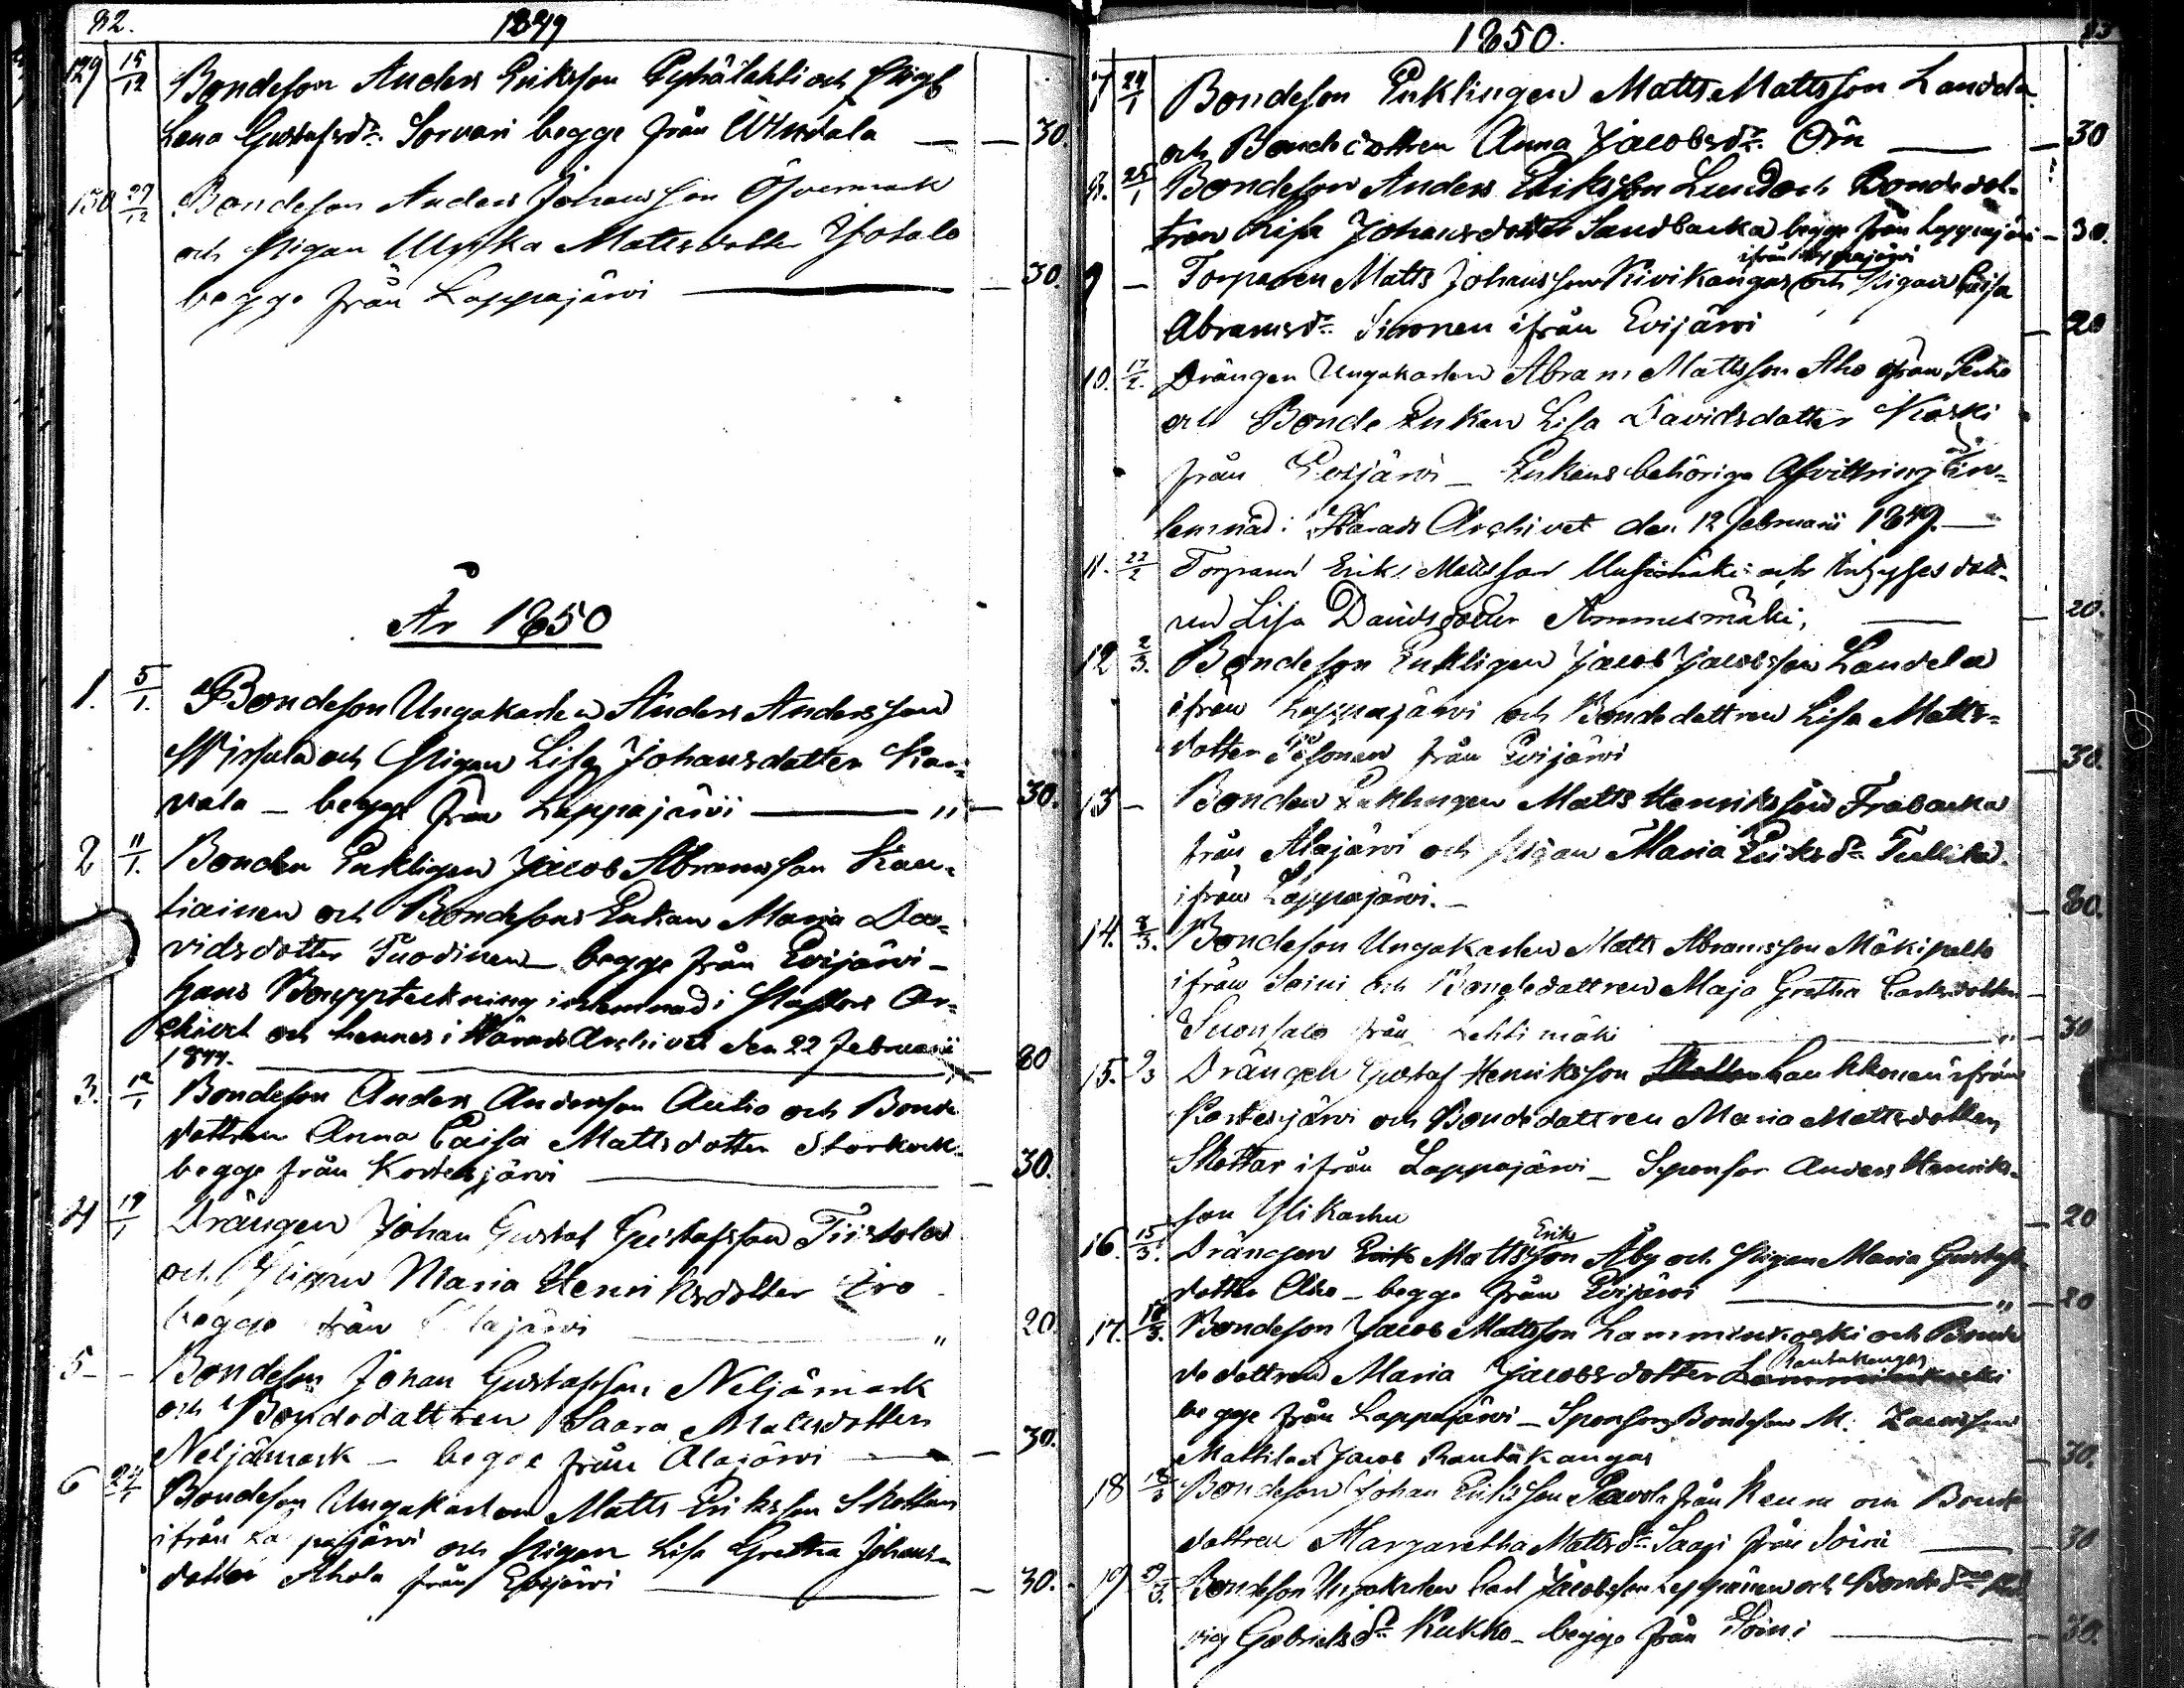 82. 1849
129 15/12 Bondeson Anders Eriksson Pyhälahti och Pig.
Lena Gustafsdr. Sorvari begge från Windala — 30.
130 27/12 Bondeson Anders Johansson Öfvermark
och Pigan Ulrika Mattsdotter
begge från Lappajärvi — 30.
År 1850
1. 5/1. Bondeson Ungakarlen Anders Andersson
Wirsula och Pigan Lisa Johansdotter Kar-
vala — begge från Lappajärvi — " — 30.
2 11/1. Bonden Enkligen Jacob Abramsson Kau-
tiainen och Bondesons Enkan Maria Da-
vidsdotter Tuodinen — begge från Evijärvi —
hans Bouppteckning inlemnad i Pastors Ar-
chivet och hennes i Härads Archivet den 22 Februarii
1844. — 20
3. 12/1 Bondeson Anders Andersson Autio och Bonde
dottren Anna Caisa Mattsdotter Storback
begge från Kortesjärvi — 30.
4 19/1 Drängen Johan Gustaf Gustafsson Tiistola
och Pigan Maria Henriksdotter Iro
begge från Alajärvi — " 20.
5 — Bondeson Johan Gustafsson Neljämark
och Bondedottren Saara Mattsdotter
Neljämark — begge från Alajärvi — 30.
6 24/1 Bondeson Ungakarlen Matts Eriksson Skottar
ifrån Lappajärvi och Pigan Lisa Gretha Johans-
dotter Ahola från Evijärvi — 30.
1850. 83
7 24/1 Bondeson Enklingen Matts Mattsson Landala
och Bondedottren Anna Jacobsdr. Örn — 30
8. 25/1 Bondeson Anders Eriksson Lund och Bondedot-
tren Lisa Johansdotter Sandbacka begge från Lappajärvi — 30.
ifrån Lappajärvi
9 — Torparen Matts Johansson Kivikangas och Pigan Caisa
Abramsdr. Simonen ifrån Evijärvi — 20
10. 17/2. Drängen Ungakarlen Abram Mattsson Aho från
och Bonde Enkan Lisa Davidsdotter Koski
från Evijärvi — Enkans behöriga Afvittring in-
lemnad i Härads Archivet den 12 Februarii 1849. —
11. 22/2 Torparen Erik Mattsson och Inhyses dott-
ren Lisa Davidsdotter Ammesmäki, — 20.
12 2/3. Bondeson Enkligen Jacob Jacobsson Landala
ifrån Lappajärvi och Bondedottren Lisa Matts-
dotter Pesonen från Evijärvi — 30.
13 — Bonden Enklingen Matts Henriksson Fräbacka
från Alajärvi och Pigan Maria Eriksdr.
ifrån Lappajärvi. — 20.
14. 8/3. Bondeson Ungakarlen Matts Abramsson Mäkipelto
ifrån Soini och Bondedottren Maja Gretha Carlsdotter
Suonsalo från Lehtimäki — " — 30
15. 9/3 Drängen Gustaf Henriksson Skottar Laukkonen ifrån
Kortesjärvi och Bondedottren Maria Mattsdotter
Skottar ifrån Lappajärvi — Sponsor Anders Henriks-
son Ylikarhu — 20
Eriks
16. 15/3. Drängen Erik Mattsson Åby och Pigan Maria Gustafs-
dotter Aho — begge från Evijärvi — " — 20
17. 18/3. Bondeson Jacob Mattsson Lamminkoski och Bonde
Rautakangas
dedottren Maria Jacobsdotter Lamminkoski
begge från Lappajärvi — Sponsorer Bondeson M.
Mattila & Jacob Rautakangas — 30.
18 18/3 Bondeson Johan Eriksson Pavola från Keuru och Bonde
dottren Margaretha Mattsdr. Saari från Soini — 30
19 19/3. Bondeson Ungakarlen Carl Jacobsson Leppänen och Bondedr. Hed-
vig Gabrielsdr. Kukko — begge från Soini — 30.